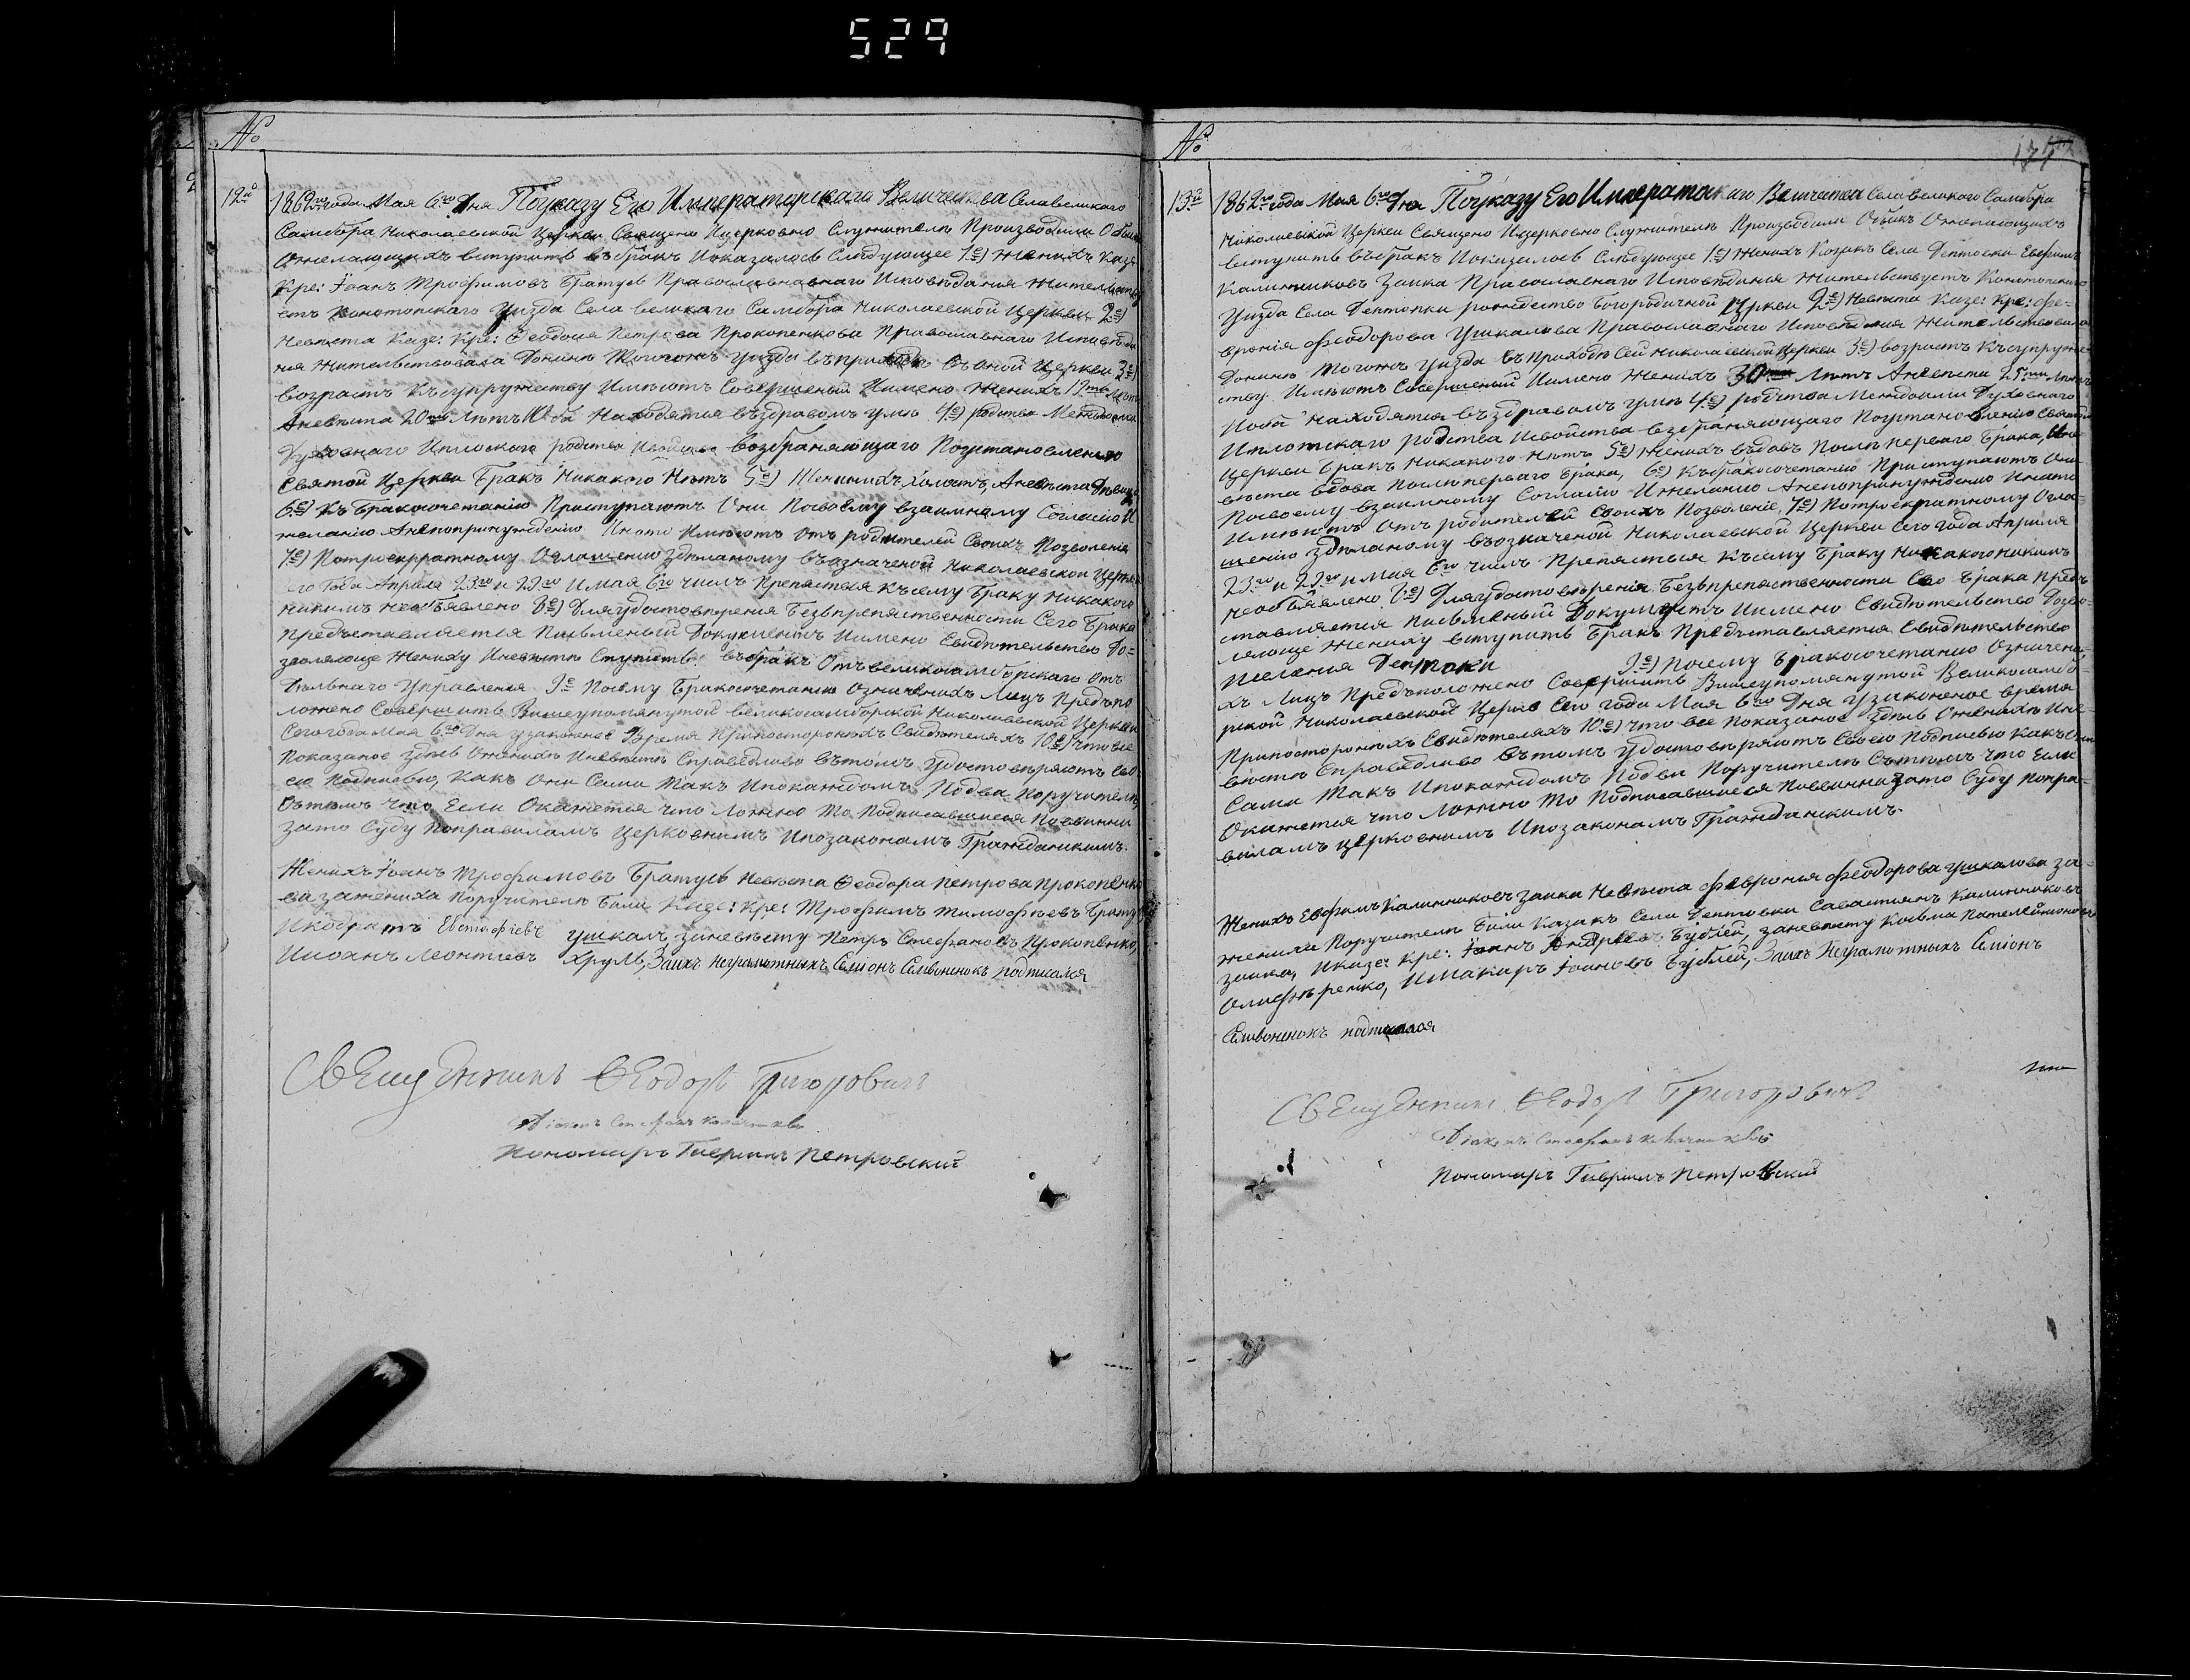 529
№
12й
1862го года Мая 6го Дня Поуказу Его Императорскаго Величества Села великого
Самбора Николаевской Церкви Священо Ицерковно Служители Производили Обыск
Ожелающихъ вступить въбракъ Ипоказалось Следующее 1е) Женихъ Казе:
Кре: Іоанъ Трофимовъ Братусь Православнаго Исповѣданія Жительству
етъ Конотопскаго Уизда Села великаго Самбора Николаевской Церкви 2е)
Невѣста Казе: Кре: Ѳеодосія Петрова Прокопенкова Православнаго Исповѣда
нія Жительствовала Донинѣ Тогожъ Уизда въприходѣ Съеной Церкви 3е)
возрастъ Къ Супружеству Имѣютъ Совершеный Иимено Женихъ 19ть Лѣтъ
Аневѣста 20ть Лѣтъ Иоба Находятся въздравомъ умѣ 4е) родства Меж
Духовнаго Иплоскаго родства Исвойства возбраняющаго Поустановленію
Святой Церкви Бракъ Никакого Нѣтъ 5е) Женихъ Холостъ, Аневѣста Дѣвица
6е) Къ Бракосочетанію Приступаютъ Они Посвоему взаимному Согласію И
желанію Анепопринужденію Инато Имѣютъ отъ родителей Своихъ Позволеніе
7е) Потроекратному Оглашенію Здѣланому въозначеной Николаевской Церкви
го Года Апрѣля 23го и 29го Имая 6го числъ Препятствія Къ сему Браку Никакого
Никимъ Необъявлено 8е) Для удостовѣренія Безъпрепятственности Сего Брака
Предъставляется Писменый Документъ Иимено Свидѣтельство До=
зволяюще Жениху Иневѣсты Ступить въбракъ Отъ великосамборскаго Отъ
Дѣльнаго Управленія 9е Посему Бракосочетанію Означенихъ Лицъ Предъпо
ложено Совершить Вишеупомянутой великосамборской Николаевской Церкви
Сего года Мая 6го Дня узаконеное Время Припостороннихъ Свидѣтеляхъ 10е) Что все
Показаное Здѣсь Оженихѣ Иневѣстѣ Справедливо вътомъ Удостовѣряютъ Сво
ею Подписью, Какъ Они Сами Такъ Ипокаждомъ Подва Поручителѣ
Сътѣмъ Что Если Окажется Что Ложно То Подписавшиеся Повинни
Зато Суду Поправиламъ Церковнимъ Ипозаконамъ Гражданскимъ.
Женихъ Іоанъ Трофимовъ Братусь Невѣста Ѳеодора Петрова Прокопенко
ва зажениха Поручители Били Казе: Кре: Трофимъ Тимофѣевъ Братусь
Икодратъ Евстафіевъ Ушкалъ, заневѣсту Петръ Стефановъ Прокопенко,
Ииоанъ Леонтіевъ Хруль, Заихъ неграмотныхъ Семіонъ Селивоненокъ подписался
Священникъ Ѳеодоръ Григоровичъ
Діаконъ Стефанъ
Пономарь Гавриилъ Петровскій
№
13й
1862го года Мая 6го Дня Поуказу Его Императскаго Величества Села великого Самбора
Николаевской Церкви Священо Ицерковно Служители Производили Обыскъ Ожелающихъ
вступить въбракъ Ипоказалось Следующее 1е) Женихъ Козакъ Села Дептовки Евфимъ
Калинниковъ Заика Православнаго Исповѣданія Жительствуетъ Конотопскаго
Уизда Села Дептовки рождество Богородичной Церкви 2е) Невѣста Казе: Кре: Фе=
вронія Феодорова Ушкалова Православнаго Исповѣданія Жительствовала
Донинѣ Тогожъ Уизда въ Приходѣ Сей Николаевской Церкви 3е) возрастъ Къ супруже=
ству Имѣютъ Совершеный Иимено Женихъ 30ть Лѣтъ Аневѣста 25ти Лѣтъ
Иоба Находятся въздравомъ умѣ 4е) родства Междоими Духовнаго
Иплотскаго родства Исвойства възбраняющаго Поустановленію Святой
Церкви Бракъ Никакого Нѣтъ 5е) Женихъ въдовъ Послѣ первого Брака, Ине
вѣста вдова Послѣ первого Брака, 6е) Къбракосочетанію Приступаютъ Они
Посвоему взаимному Согласію Ижеланію Анепопринужденію Инато
Имѣютъ Отъ родителей Своихъ Позволеніе, 7е) Потроекратному Огла=
шенію Здѣланому въозначеной Николаевской Церкви Сего года Апрѣля
23го и 29го Имая 6го числъ Препятствія Къ сему Браку Никакого Никимъ
Необъявлено 8е) Для удостовѣренія Безъпрепятственности Сего Брака Предъ
ставляется Писменый Документъ Иимено Свидѣтельство Дозво=
ляюще Жениху вступить Бракъ Предъставляется Свидѣтельство
Пселенія Дептовки 9е) Посему Бракосочетанію Означены
хъ Лицъ Предъположено Совершить Вишеупомянутой Великосамбо=
рской Николаевской Церкв Сего года Мая 6го Дня Узаконеное время
Припостороннихъ Свидѣтеляхъ 10е) Что все Показаное Здѣсь Оженихѣ Ине=
вѣстѣ Справедливо вътомъ Удостовѣряютъ Своею Подписью Какъ Они
Сами Такъ Ипокаждомъ Подва Поручителѣ Сътѣмъ Что Если
Окажется Что Ложно То Подписавшиеся Повинни Зато Суду Попра=
виламъ Церковнимъ Ипозаконамъ Гражданскимъ.
Женихъ Евфимъ Калинниковъ Заика Невѣста Февронія Феодорова Ушкалова за=
жениха Поручители Били Казакъ Села Дептовки Савастіянъ Калинниковъ
Заика, Иказе: Кре: Іоанъ Андреевъ Бублей, заневѣсту Косьма Пателеймоновъ
Олифѣренко, ИМакаръ Іоановъ Бублей, Заихъ Неграмотныхъ Семіонъ
Селивоненокъ подписался
Священникъ Ѳеодоръ Григоровичъ
Діаконъ Стефанъ
Пономарь Гавриилъ Петровскій